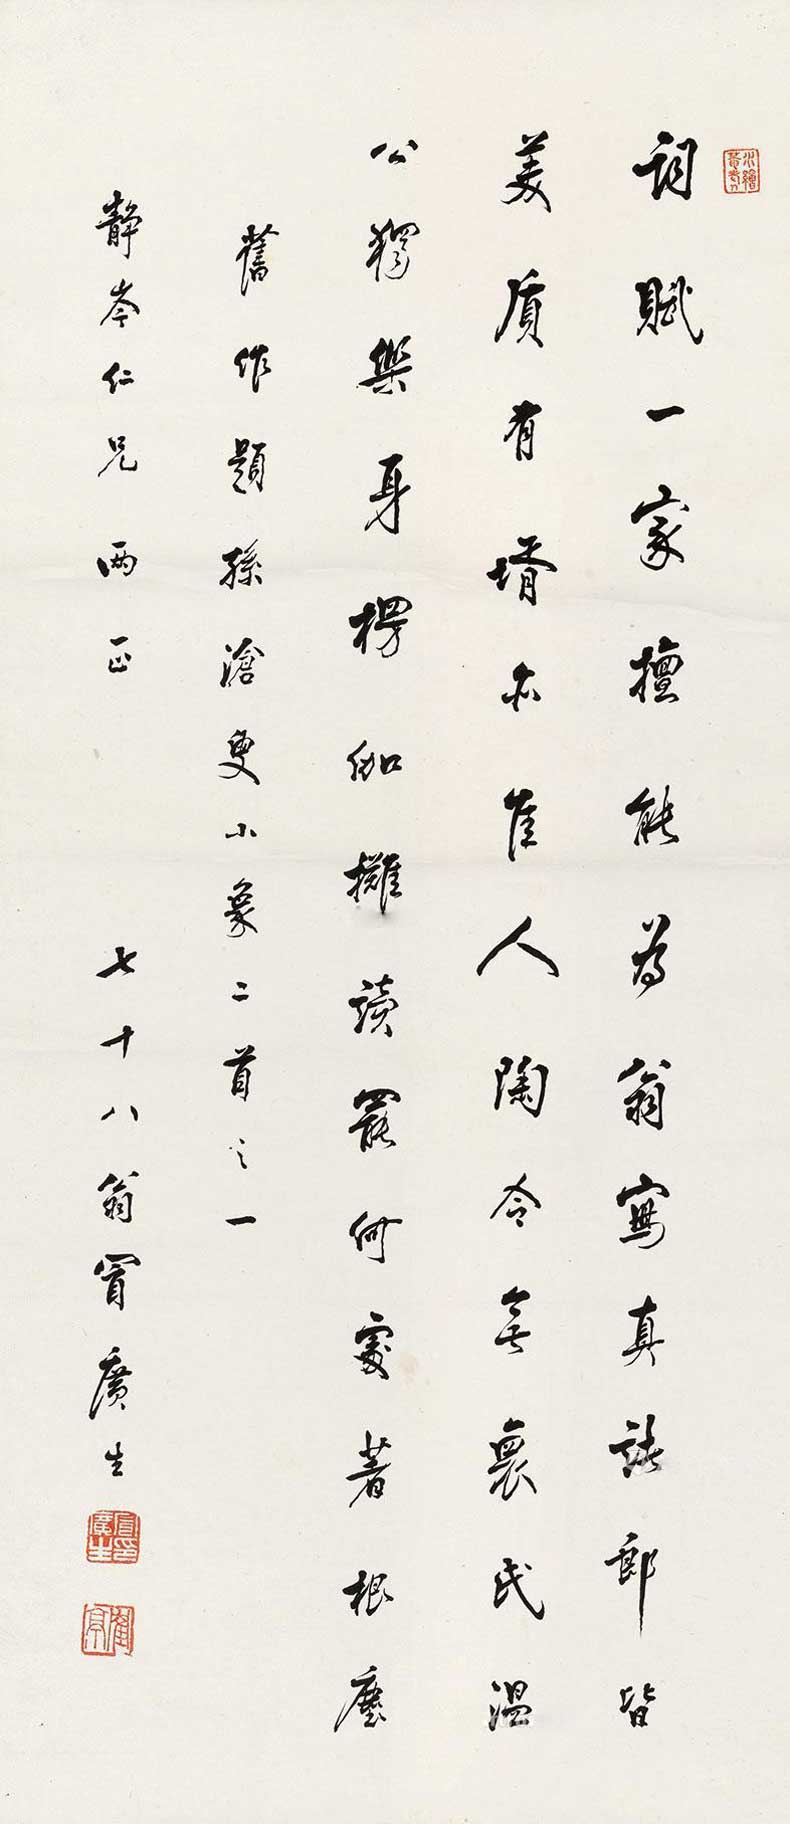 詞賦一家擅能為翁寫真諸郎皆
美質有壻亦佳人陶令無褱氏溫
公獨樂身楞伽攤讀罷何處著根塵
舊作題孫滄叟小象二首之一
靜岑仁兄兩正 七十八翁冒廣生
冒印廣生
鶴亭